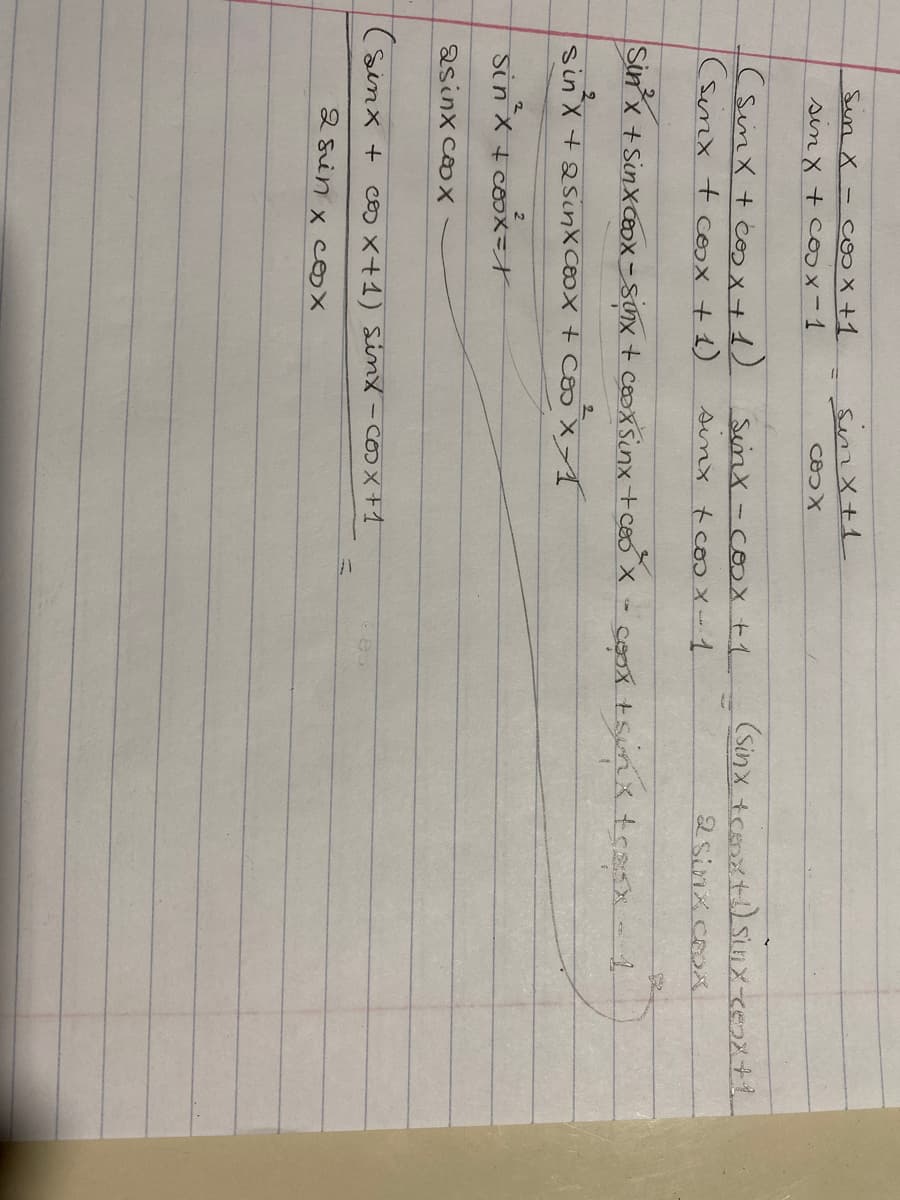 sin x - cos x + 1 = sin x + 1
sin x + cos x - 1 cos x
(sin x + cos x + 1) sin x - cos x + 1 = (sin x + cos x + 1) sin x - cos x + 1
(sin x + cos x + 1) sin x + cos x - 1 2 sin x cos x
sin²x + sin x cos x - sin x + cos x sin x + cos²x - cos x + sin x + cos x - 1
sin²x + 2 sin x cos x + cos²x - 1
sin²x + cos²x = 1
2 sin x cos x
(sin x + cos x + 1) sin x - cos x + 1 =
2 sin x cos x